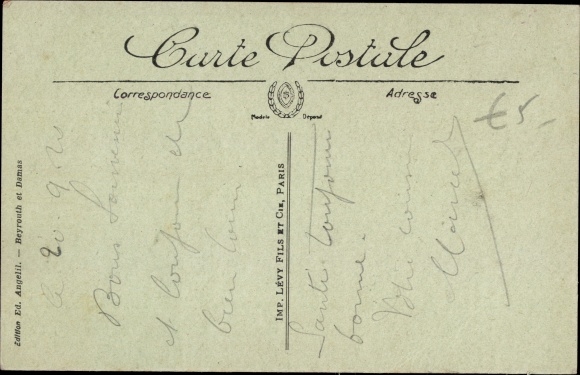 Carte Postale
Correspondance
Adresse
Modèle Déposé
£5-
Edition Ed. Angelil. — Beyrouth et Damas
IMP. LÉVY FILS ET CIE, PARIS
le 20. 9. 20
Bons Souvenirs
et toujours de
bien loin.
Santé toujours
bonne.